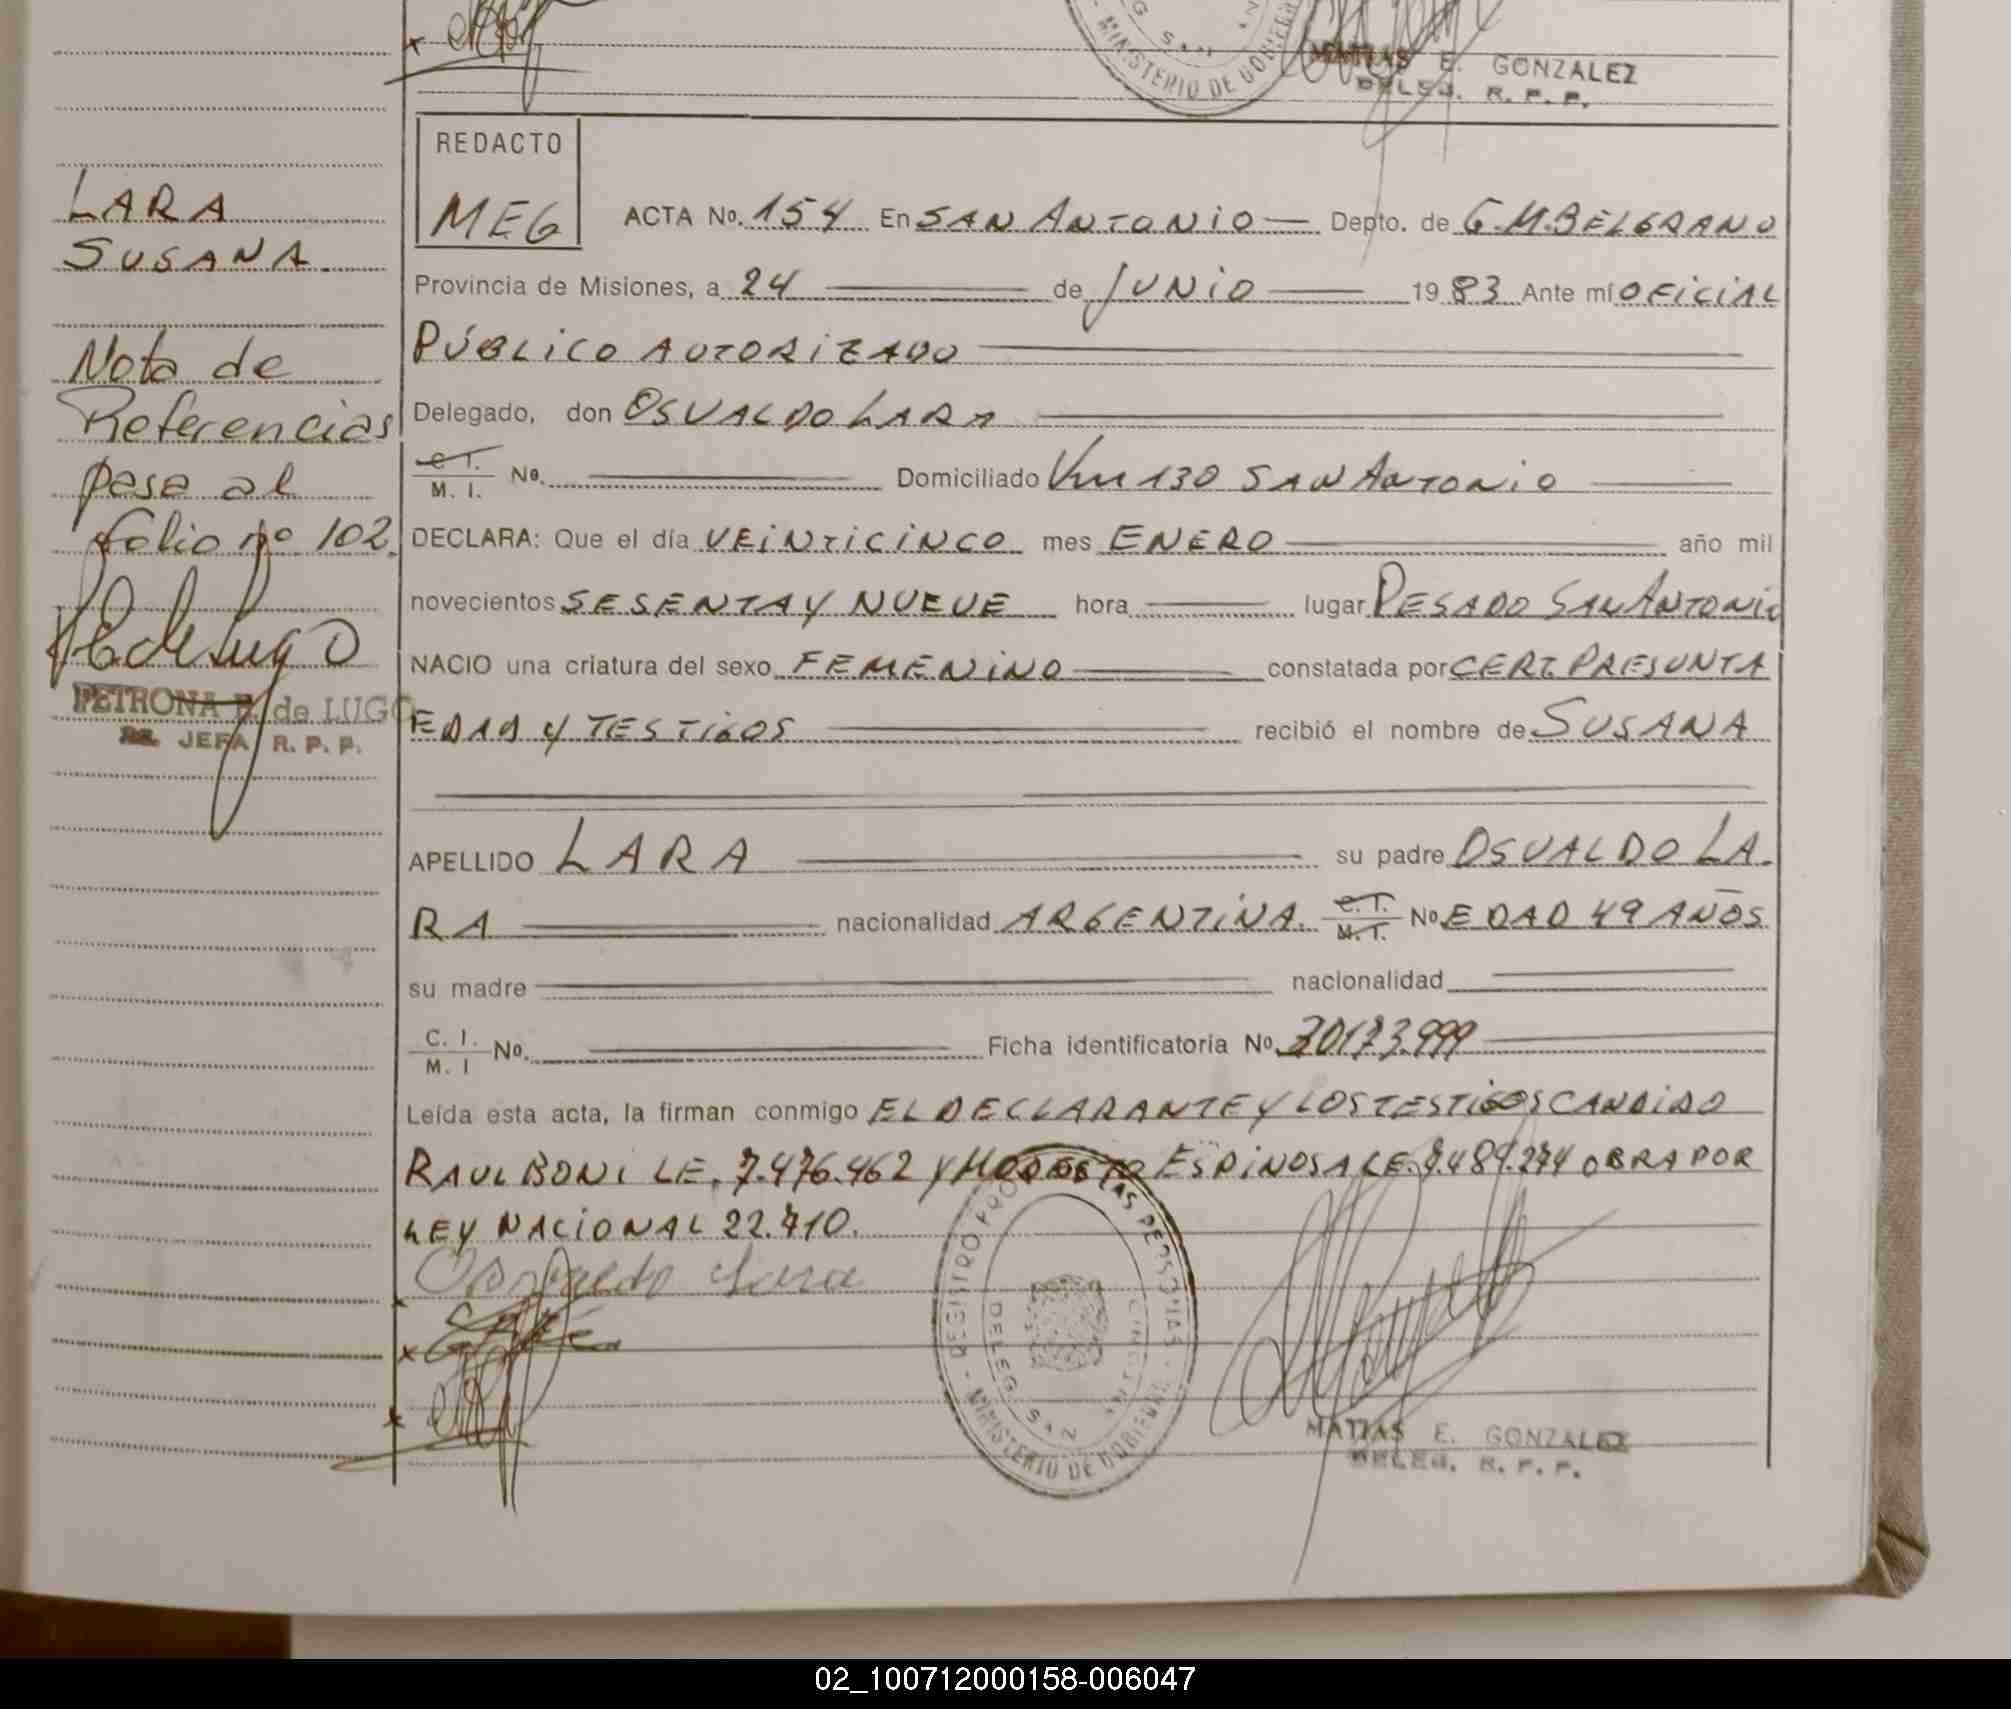 MATIAS E. GONZALEZ
DELEG. R. P. P.
MINISTERIO DE GOBIERNO
LARA
SUSANA.
Nota de
Referencias
pasa al
folio nº 102.
PETRONA de LUGO
JEFA R. P. P.
REDACTO
MEG
ACTA No. 154 En SAN ANTONIO Depto. de G.M.BELGRANO
Provincia de Misiones, a 24 de JUNIO 1983 Ante mí OFICIAL
PÚBLICO AUTORIZADO
Delegado, don OSVALDO LARA
C. I. / M. I. No. Domiciliado Km 130 SAN ANTONIO
DECLARA: Que el día VEINTICINCO mes ENERO año mil
novecientos SESENTA Y NUEVE hora lugar PESADO SAN ANTONIO
NACIO una criatura del sexo FEMENINO constatada por CERT. PRESUNTA
EDAD Y TESTIGOS recibió el nombre de SUSANA
APELLIDO LARA su padre OSVALDO LA.
RA nacionalidad ARGENTINA. C. I. / M. I. No EDAD 49 AÑOS
su madre nacionalidad
C. I. / M. I No. Ficha identificatoria No. 20173.999
Leída esta acta, la firman conmigo EL DECLARANTE Y LOS TESTIGOS CANDIDO
RAUL BONI LE. 7.476.462 Y MODESTO ESPINOSA LE. 8.489.274 OBRA POR
LEY NACIONAL 22.410.
Osvaldo Lara
REGISTRO PROVINCIAL DE LAS PERSONAS - MINISTERIO DE GOBIERNO -
DELEG. SAN ANTONIO
MATIAS E. GONZALEZ
DELEG. R. P. P.
02_100712000158-006047